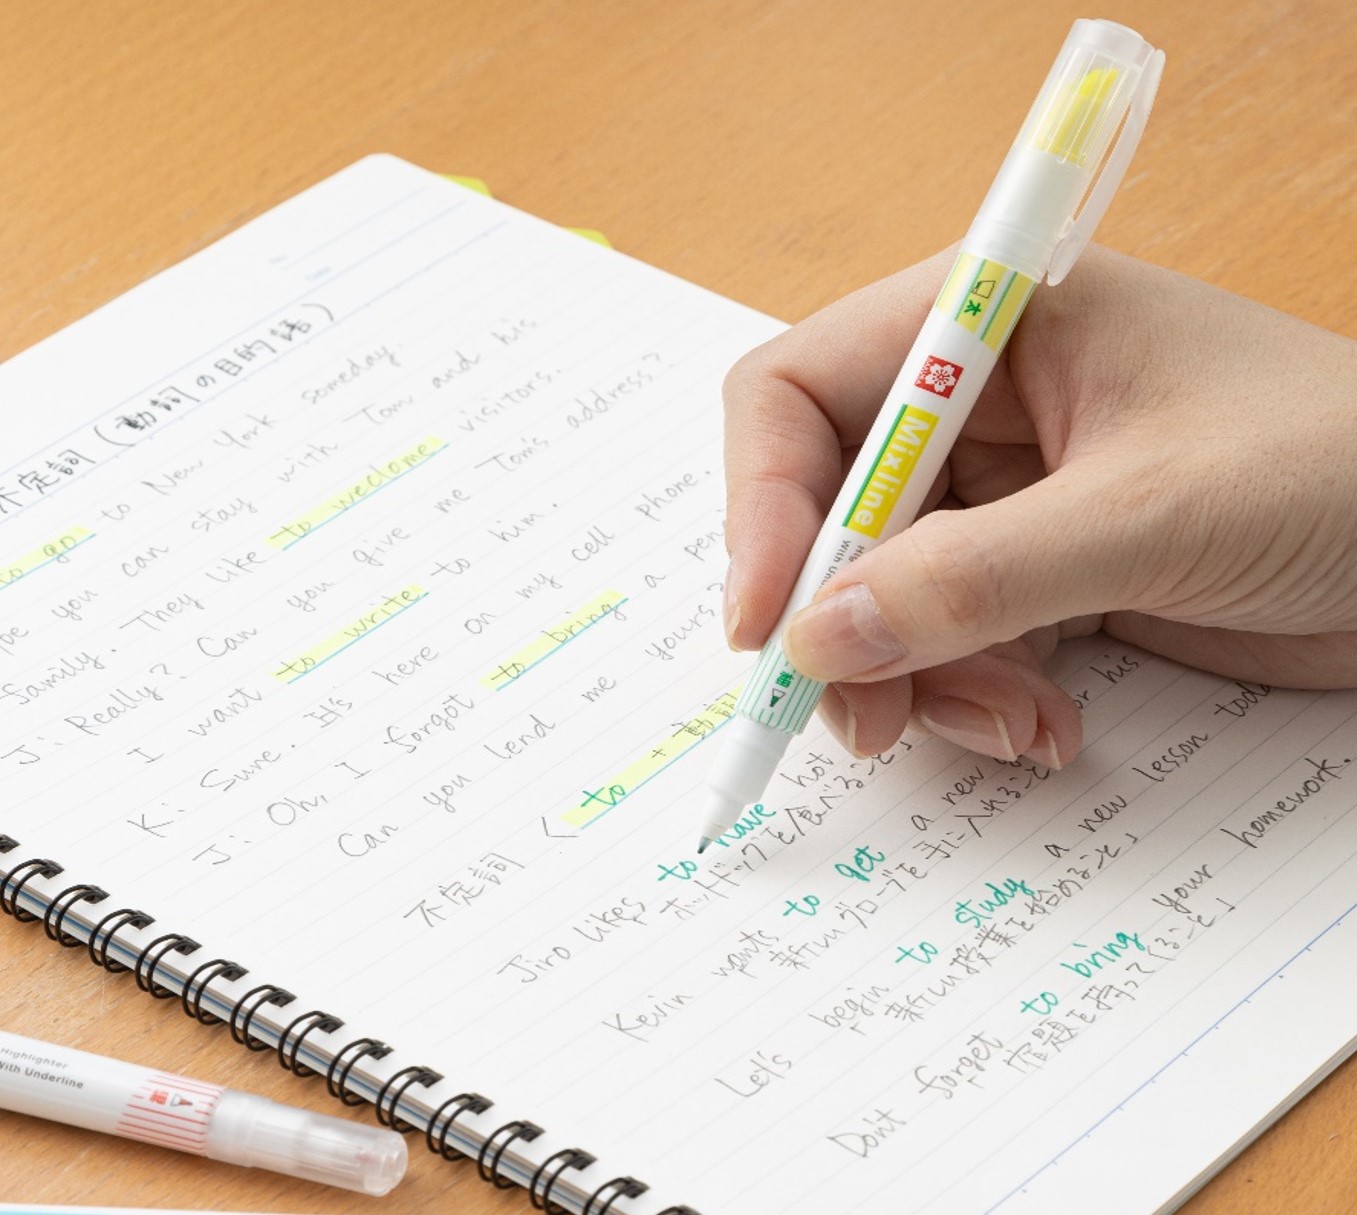 不定詞(動詞の目的語)
to go to New York someday.
pe you can stay with Tom and his
family. They like to weclome visitors.
J: Really? Can you give me Tom's address?
I want to write to him.
K: Sure. It's here on my cell phone.
J: Oh, I forgot to bring a pen
Can you lend me yours?
不定詞 < to + 動詞
Jiro likes to have hot
ホットドッグを食べること」
Kevin wants to get a new for his
新しいグローブを手に入れること」
Let's begin to study a new lesson toda
「新しい授業を始めること」
Don't forget to bring your homework.
「宿題を持ってくること」
太
Mixline
With
細
Highlighter
With Underline
細